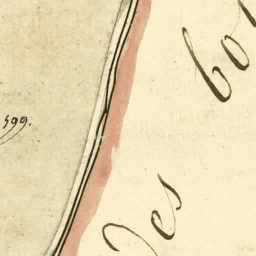 599.
Des
bo